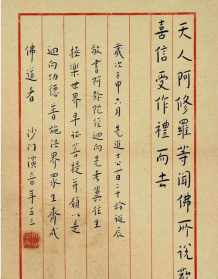 天人阿修羅等聞佛所說歡
喜信受作禮而去
歲次壬申六月先進士公百二十齡誕辰
敬書阿彌陀經迴向先考冀往生
極樂世界早證菩提並願以是
迴向功德普施法界眾生齊成
佛道者 沙門演音年五十三